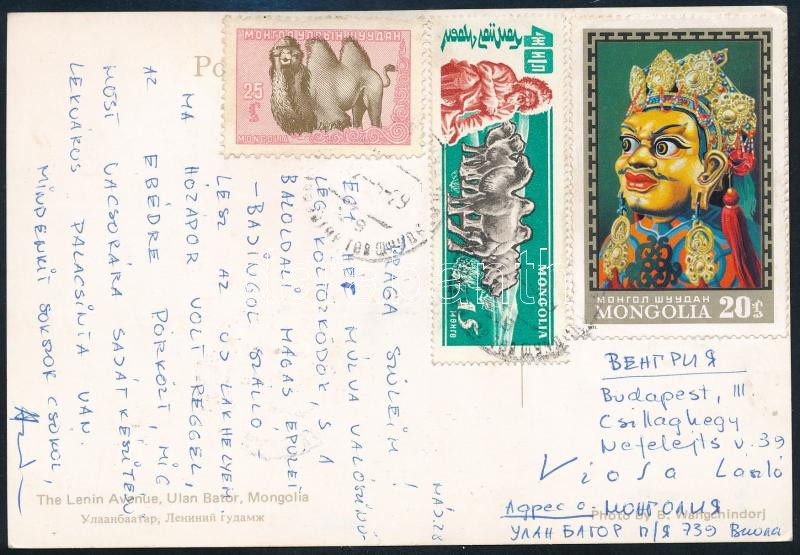 МОНГОЛ УЛСЫН ШУУДАН
25
MONGOLIA
40 ЖИЛ
MONGOLIA
15
МӨНГӨ
МОНГОЛ ШУУДАН
MONGOLIA 20
1971
Po
MÁJ. 28
DRÁGA SZÜLEIM!
EGY HÉT MÚLVA VALÓSZINÜ-
LEG KÖLTÖZKÖDÖK, S A
BALOLDALI MAGAS ÉPÜLET
- BAJINGOL SZÁLLÓ -
LESZ AZ UJ LAKHELYEM.
MA HÓZÁPOR VOLT REGGEL,
EBÉDRE PÖRKÖLT, MIG
AZ
MOST VACSORÁRA SAJÁT KÉSZÜTÉSÜ
LEKVÁROS PALACSINTA VAN.
MINDENKIT SOKSOR CSÓKOL,
ВЕНГРИЯ
Budapest, III.
Csillaghegy
Nefelejts u. 39
Viola László
Адрес о. МОНГОЛИЯ
УЛАН БАТОР П/Я 739 Виола
The Lenin Avenue, Ulan Bator, Mongolia
Улаанбаатар, Лениний гудамж
Photo by B. Wangchindorj